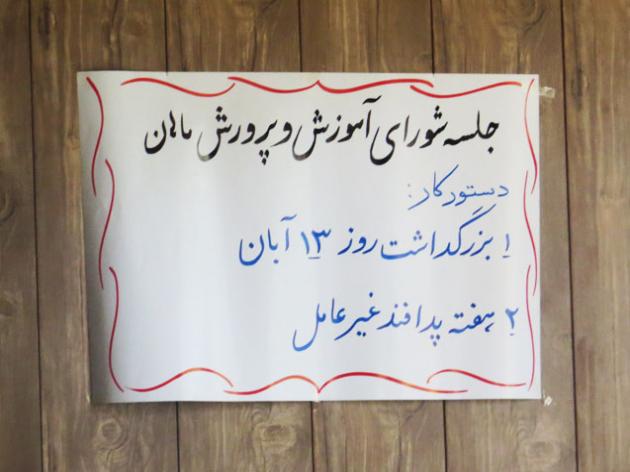 جلسه شورای آموزش و پرورش ماهان
دستور کار:
۱ بزرگداشت روز ۱۳ آبان
۲ هفته پدافند غیر عامل